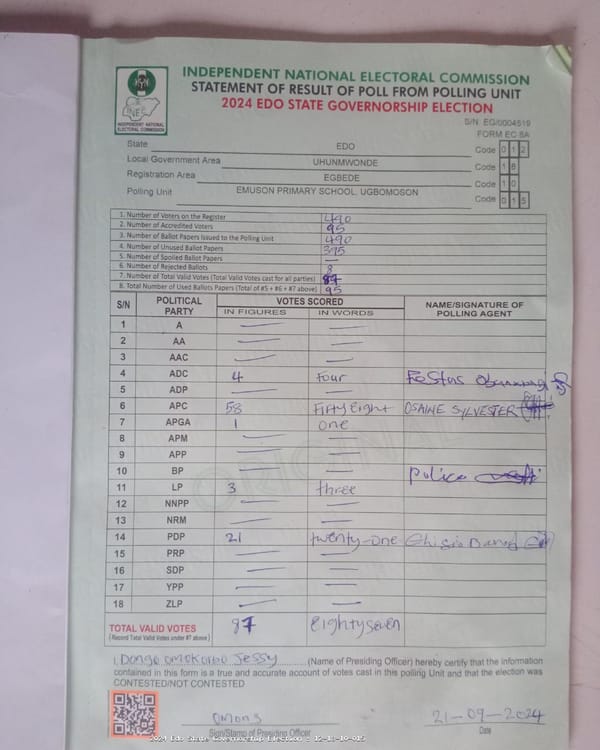 INDEPENDENT NATIONAL ELECTORAL COMMISSION
STATEMENT OF RESULT OF POLL FROM POLLING UNIT
2024 EDO STATE GOVERNORSHIP ELECTION
INEC
INDEPENDENT NATIONAL
ELECTORAL COMMISSION
S/N: EG/0004519
FORM EC 8A
State EDO Code 0 1 2
Local Government Area UHUNMWONDE Code 1 8
Registration Area EGBEDE Code 1 0
Polling Unit EMUSON PRIMARY SCHOOL, UGBOMOSON Code 0 1 5
1. Number of Voters on the Register 490
2. Number of Accredited Voters 95
3. Number of Ballot Papers Issued to the Polling Unit 490
4. Number of Unused Ballot Papers 395
5. Number of Spoiled Ballot Papers —
6. Number of Rejected Ballots 8
7. Number of Total Valid Votes (Total Valid Votes cast for all parties) 87
8. Total Number of Used Ballots Papers (Total of #5 + #6 + #7 above) 95
S/N POLITICAL PARTY VOTES SCORED NAME/SIGNATURE OF POLLING AGENT
IN FIGURES IN WORDS
1 A — —
2 AA — —
3 AAC — —
4 ADC 4 Four Festus
5 ADP — —
6 APC 58 Fifty Eight OSAINE SYLVESTER
7 APGA 1 one
8 APM — —
9 APP — —
10 BP — — Police
11 LP 3 three
12 NNPP — —
13 NRM — —
14 PDP 21 twenty-one
15 PRP — —
16 SDP — —
17 YPP — —
18 ZLP — —
TOTAL VALID VOTES 87 Eighty seven
(Record Total Valid Votes under #7 above)
I, Jessy (Name of Presiding Officer) hereby certify that the information
contained in this form is a true and accurate account of votes cast in this polling Unit and that the election was
CONTESTED/NOT CONTESTED
21-09-2024
Sign/Stamp of Presiding Officer Date
2024 Edo State Governorship Election : 12-18-10-015